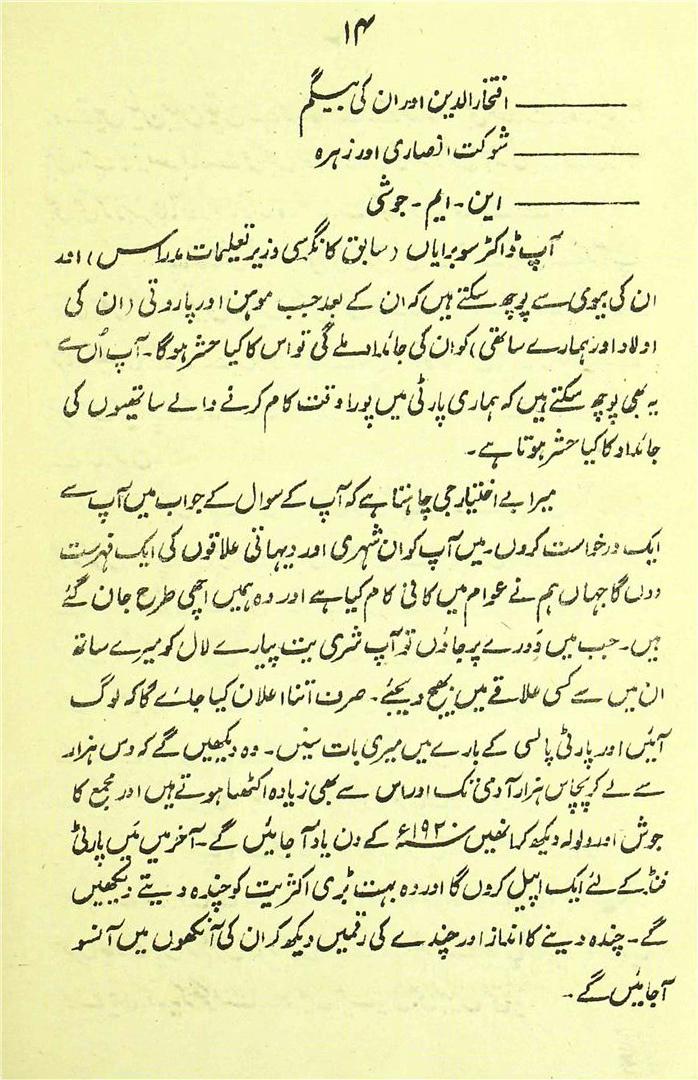 ۱۴
——— افتخار الدین اور ان کی بیگم
——— شوکت انصاری اور زہرہ
——— این - ایم - جوشی
آپ ڈاکٹر سوبرایاں (سابق کانگرسی وزیر تعلیمات مدراس) اور
ان کی بیوی سے پوچھ سکتے ہیں کہ ان کے بعد جب موہن اور پاروتی (ان کی
اولاد اور ہمارے ساتھی) کو ان کی جائداد ملے گی تو اس کا کیا حشر ہوگا - آپ اُن سے
یہ بھی پوچھ سکتے ہیں کہ ہماری پارٹی میں پورا وقت کام کرنے والے ساتھیوں کی
جائداد کا کیا حشر ہوتا ہے -
میرا بے اختیار جی چاہتا ہے کہ آپ کے سوال کے جواب میں آپ سے
ایک درخواست کروں - میں آپ کو ان شہری اور دیہاتی علاقوں کی ایک فہرست
دوں گا جہاں ہم نے عوام میں کافی کام کیا ہے اور وہ ہمیں اچھی طرح جان گئے
ہیں - جب میں دَورے پر جاؤں تو آپ شری یت پیارے لال کو میرے ساتھ
ان میں سے کسی علاقے میں بھیج دیجئے - صرف اتنا اعلان کیا جائے گا کہ لوگ
آئیں اور پارٹی پالسی کے بارے میں میری بات سنیں - وہ دیکھیں گے کہ دس ہزار
سے لے کر پچاس ہزار آدمی تک اور اس سے بھی زیادہ اکٹھا ہوتے ہیں اور مجمع کا
جوش اور ولولہ دیکھ کر انھیں سنہ ۱۹۲۰ء کے دن یاد آ جائیں گے - آخر میں مَیں پارٹی
فنڈ کے لئے ایک اپیل کروں گا اور وہ بہت بڑی اکثریت کو چندہ دیتے دیکھیں
گے - چندہ دینے کا انداز اور چندے کی رقمیں دیکھ کر ان کی آنکھوں میں آنسو
آجائیں گے -